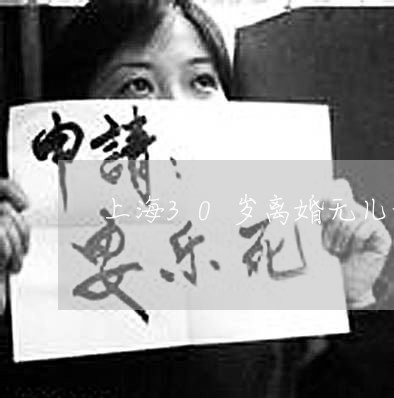 申請：
上海30岁离婚无儿
安乐死